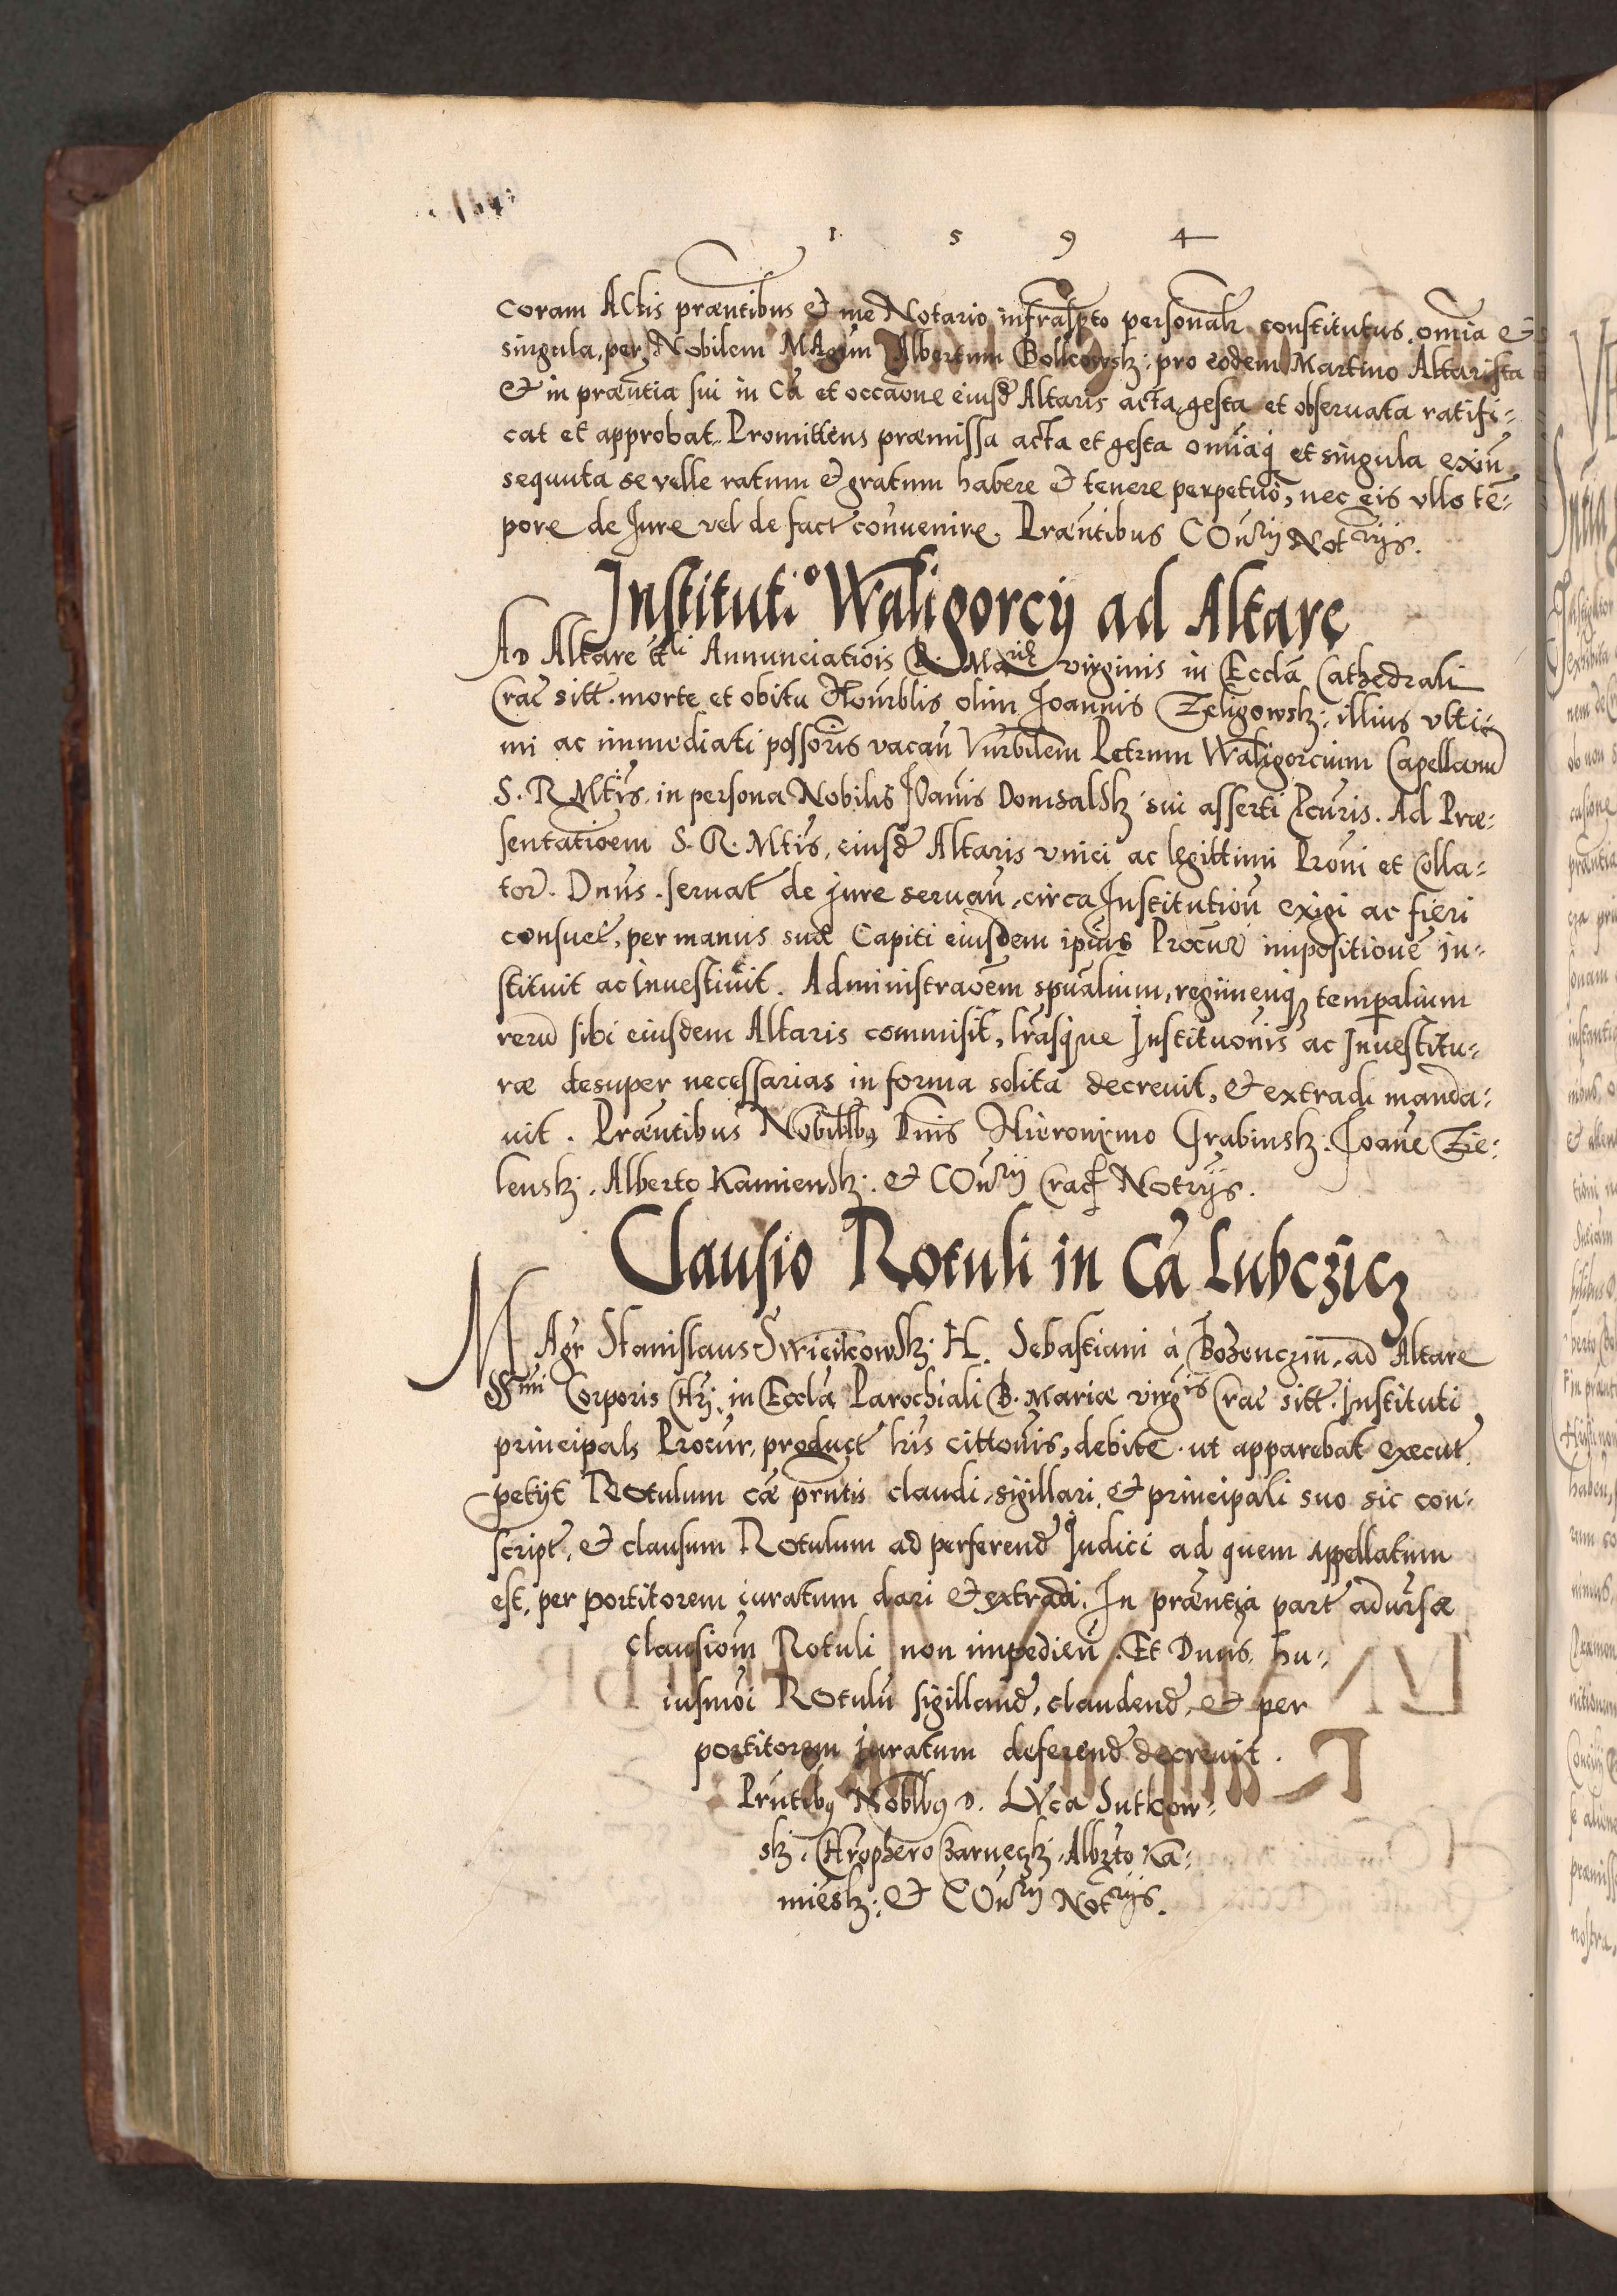 1 5 9 4
coram Actis præntibus et me Notario infrascpto personalr constitutus, omia et
singula, per Nobilem Mgrum Albertum Bolkowsk: pro eodem Martino Altarista
et in præntia sui in Ca et occaone eiusd Altaris acta, gesta et obseruata ratifi-
cat et approbat. Promittens præmissa acta et gesta omiaq et singula exin
sequuta se velle ratum et gratum habere et tenere perpetuo, nec eis vllo te-
pore de Jure vel de fact conuenire. Præntibus COnrij Notrijs.
Institutio Waligorcij ad Altare
Ad Altare ttli Annunciatiois B. Marię virginis in Eccla Cathedrali
Crac sitt. morte et obitu Honrblis olim Joannis Zeligowsk: illius vlti-
mi ac immediati possoris vacan Vnrbilem Petrum Waligorcium Capellanu
S. R. Mtis, in persona Nobilis JOanis Domsalsk sui asserti Pcuris. Ad Præ-
sentatioem S. R. Mtis, eiusd Altaris vnici ac legittimi Proni et Colla-
tor. Dnus. seruat de jure seruan, circa Institution exigi ac fieri
consuet, per manus suæ Capiti eiusdem ipius Procur impositione in-
stituit ac inuestiuit. Administraoem spualium, regimenq temporalium
reru sibi eiusdem Altaris commisit, lrasque Instituonis ac Inuestitu-
ræ desuper necessarias in forma solita decreuit, et extradi manda-
uit. Præntibus Nobibus Dnis Hieronimo Grabinsk. Joane Zie-
lensk. Alberto Kamiensk. et COnrij Crac Notrijs.
Clausio Rotuli in Ca Lubczicz
MAgr Stanislaus Swiecikowsk. H. Sebastiani à Bozenczin, ad Altare
SSmi Corporis Chri, in Eccla Parochiali B. Mariæ virgis Crac sitt. Instituti
principals Procur, product lris cittonis, debite ut apparebat execut
petijt Rotulum cæ prntis claudi, sigillari, et principali suo sic con-
script, et clausum Rotulum ad perferend Judici ad quem appellatum
est, per portitorem iuratum dari et extradi. In præntia part aduersæ
clausiom Rotuli non impedien. Et Dnus. hu-
iusmoi Rotulu sigilland, claudend, et per
portitorem juratum deferend decreuit.
Prntibus Noblbus D. Luca Sutkow-
sk. Chrophero Czarneczk. Albrto Ka-
miesk: et COnrij Notrijs.